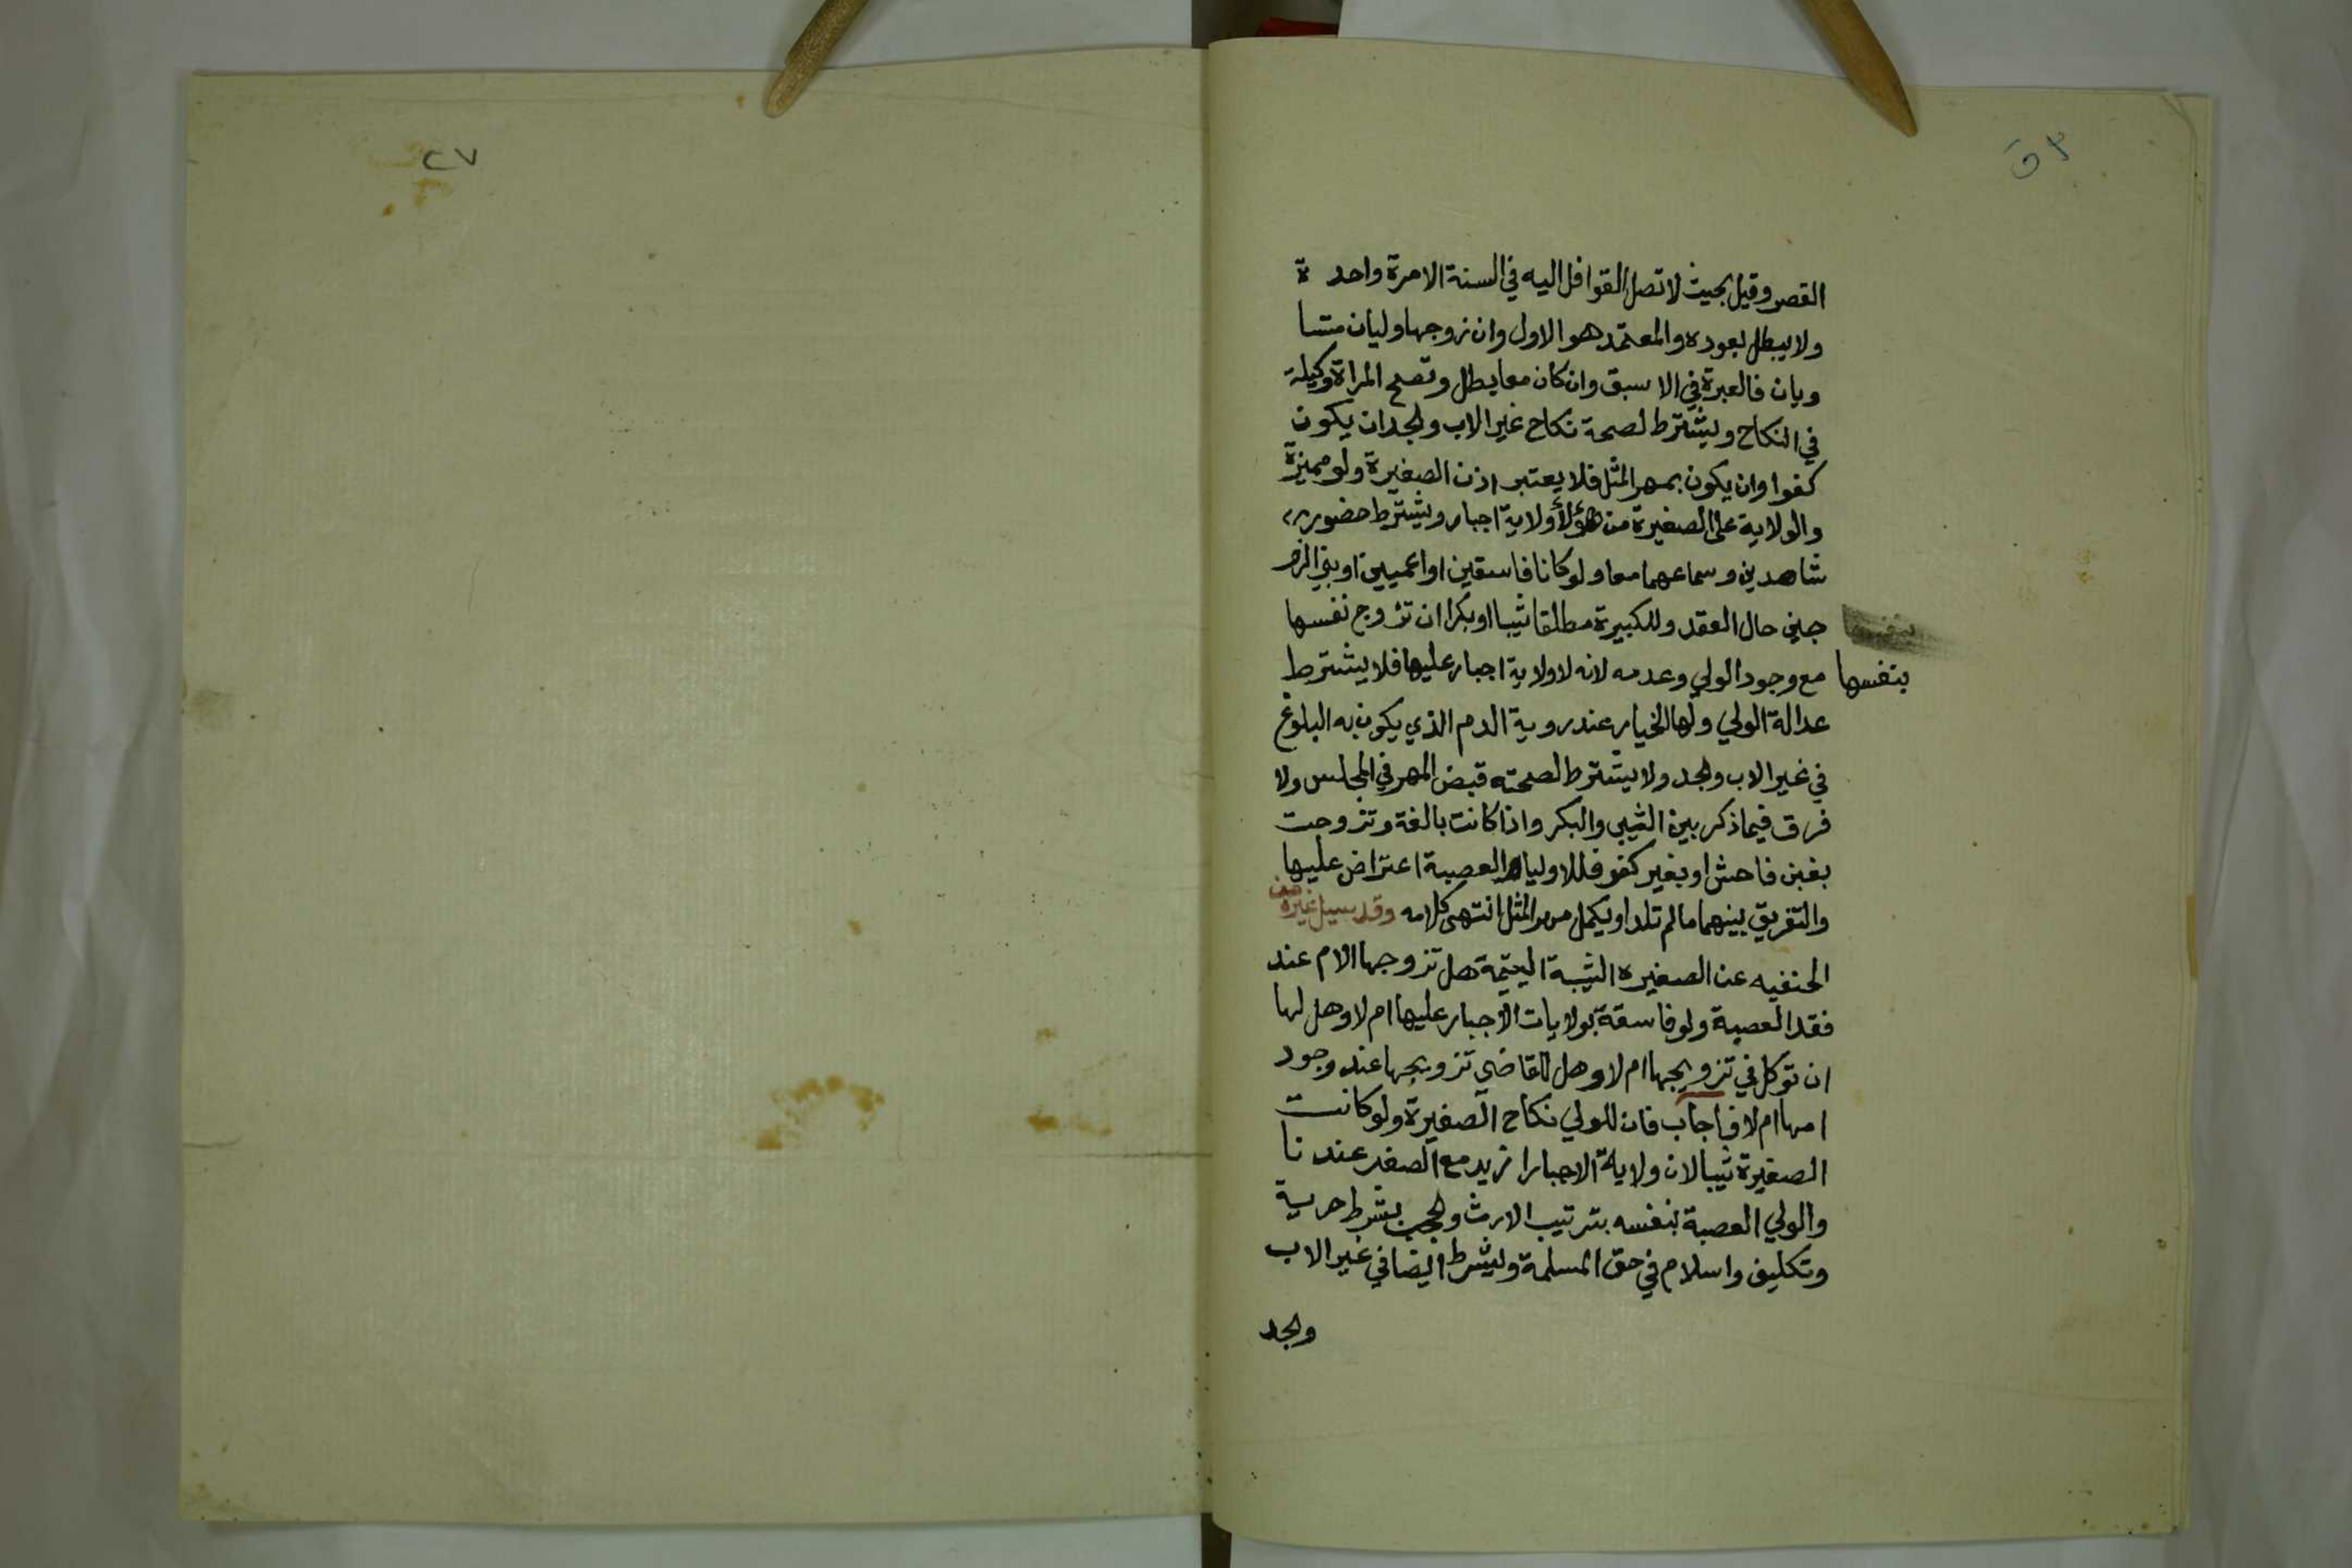 القصر وقيل بحيث لا تصل القوافل اليه في السنة الا مرة واحدة
ولا يبطل بعوده والمعتمد هو الاول وان زوجها وليان متسا
ويان فالعبرة في الا سبق وان كان معا يطل وتصح المراة وكيلة
في النكاح ويشترط لصحة نكاح غير الاب والجد ان يكون
كفوا وان يكون بمهر المثل فلا يعتبر اذن الصغيرة ولو مميزة
والولاية على الصغيرة من هؤلأ ولاية اجبار ويشترط حضور
شاهدين وسماعهما معا ولو كانا فاسقين او اعميين او بني الزو
جين حال العقد وللكبيرة مطلقا ثيبا او بكرا ان تزوج نفسها
بنفسها
مع وجود الولي وعدمه لانه لا ولاية اجبار عليها فلا يشترط
عدالة الولي ولها الخيار عند روية الدم الذي يكون به البلوغ
في غير الاب والجد ولا يشترط لصحته قبض المهر في المجلس ولا
فرق فيما ذكر بين الثيب والبكر واذا كانت بالغة وتزوجت
بغبن فاحش او بغير كفو فللاولياء العصبة اعتراض عليها
والتفريق بينهما مالم تلد او يكمل مهر المثل انتهى كلامه وقد سيل غيره من
الحنفيه عن الصغيره الثيبة اليتيمة هل تزوجها الام عند
فقد العصبة ولو فاسقة بولايات الاجبار عليها ام لا وهل لها
ان توكل في تزويجها ام لا وهل للقاضي تزويجها عند وجود
امها ام لا فاجاب فان للولي نكاح الصغيرة ولو كانت
الصغيرة ثيبا لان ولاية الاجبار ازيد مع الصغير عندنا
والولي العصبة بنفسه بترتيب الارث والحجب بشرط حرية
وتكليف واسلام في حق المسلمة ويشرط ايضا في غير الاب
والجد
٢٧